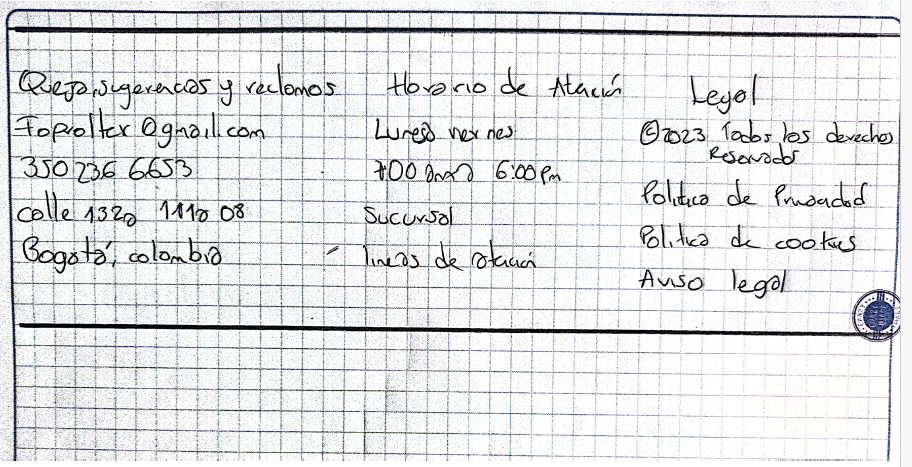 Queja, sugerencias y reclamos
Foprolter@gmail.com
350 236 6653
calle 132a 111a 08
Bogotá, colombia
Horario de Atación
Lunes a viernes
7:00 am a 6:00 Pm
Sucursal
lineas de atención
Legal
©2023 Todos los derechos
Reservados
Politica de Privacidad
Politica de cookies
Aviso legal